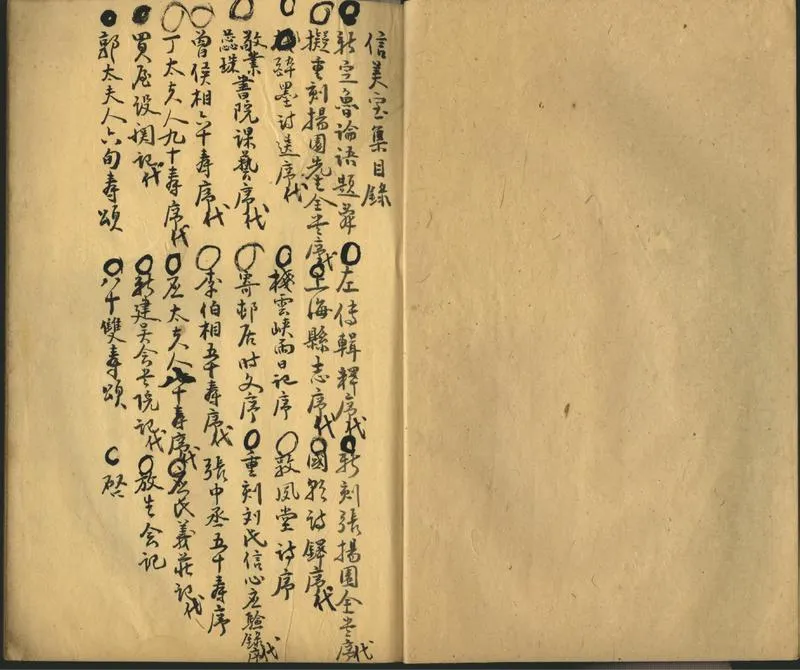 信美室集目錄
新定魯論語題辭 左傳輯釋序代 新刻張揚園全书序代
擬重刻揚園先生全书序代 上海縣志序代 國朝詩鐸序代
醉墨詩送序代 棧雲峽雨日記序 敦夙堂詩序
敬業蕊珠書院課藝序代 寄邨居时文序 重刻刘氏信心应驗錄序代
曾侯相六十壽序代 李伯相五十壽序代 張中丞五十壽序
丁太夫人九十壽序代 应太夫人八十壽序代 应氏義莊記代
買屋设塾記代 新建吴会书院記代 放生会記
郭太夫人六旬壽頌 八十雙壽頌 啓